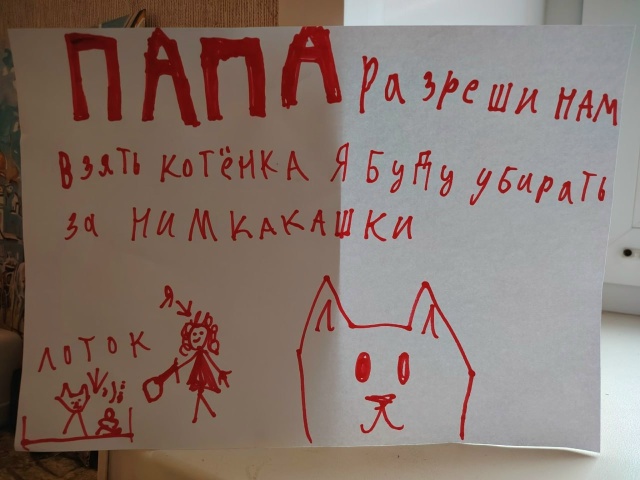 ПАПА Разреши нам
взять котёнка Я буду убирать
за ним какашки
Я
лоток